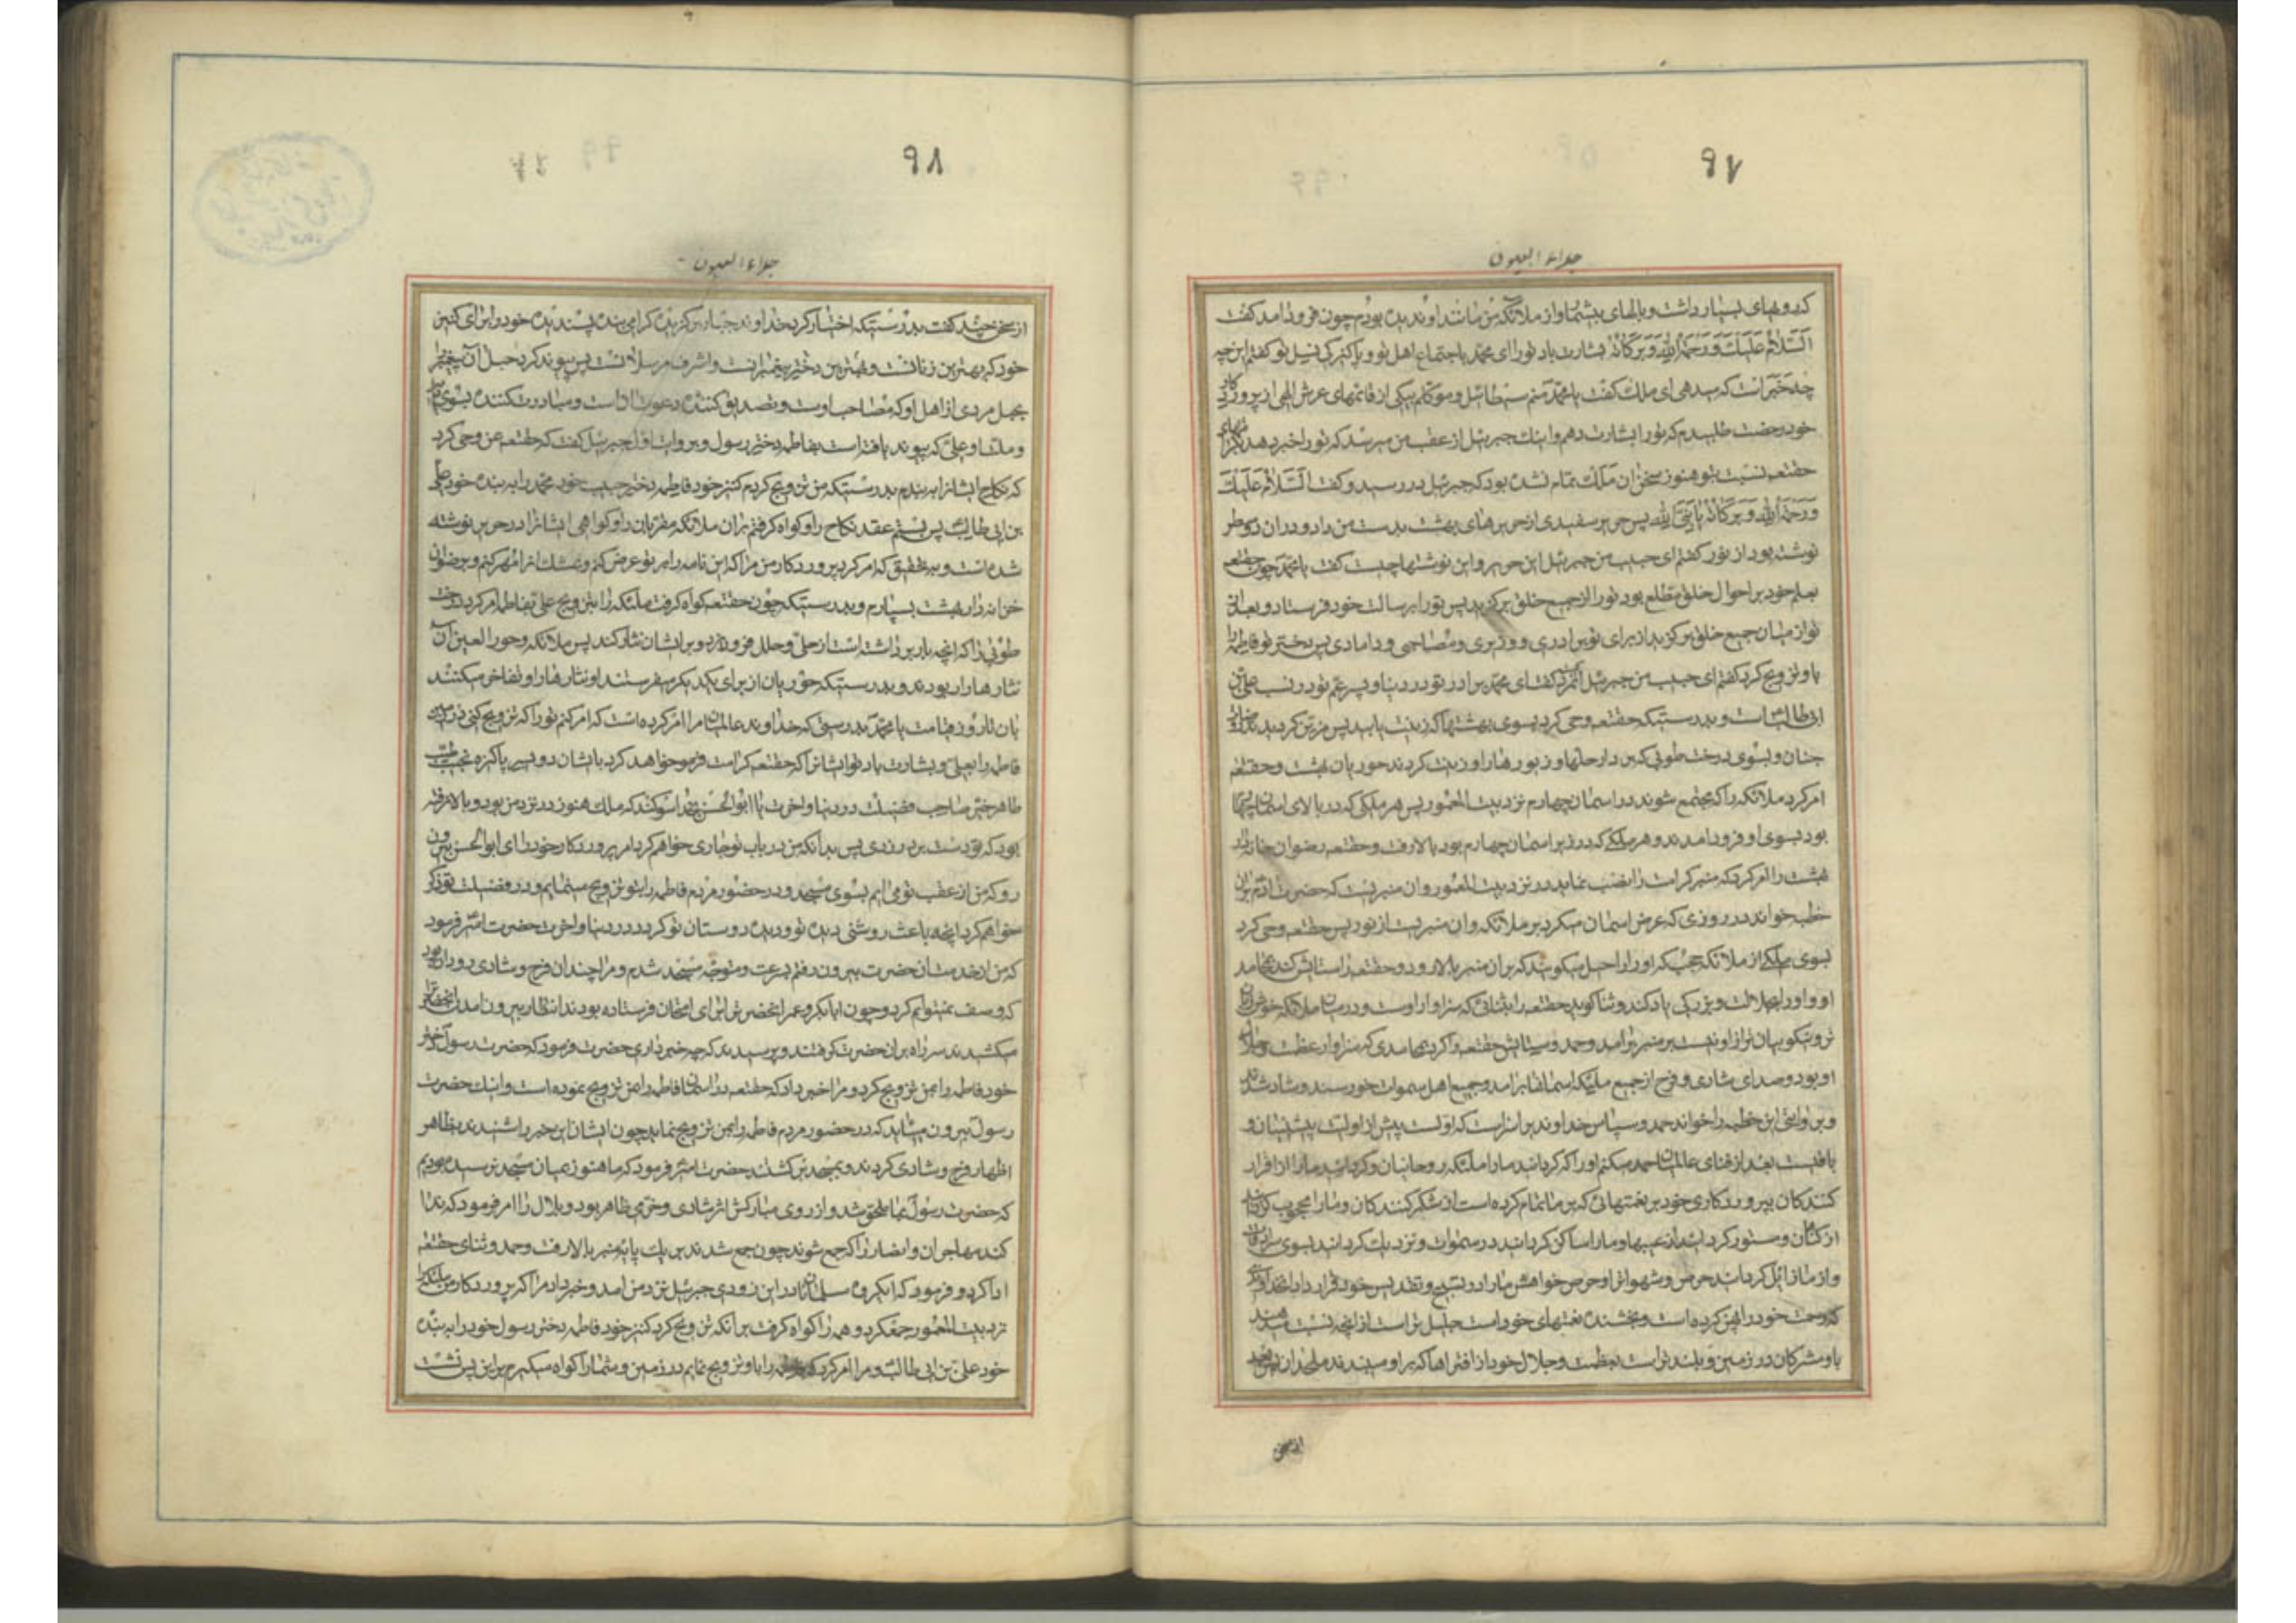 ۹۷
جلاء العیون
که روهای بسیار داشت و بالهای بیشمار و از ملائکه من مانند او ندیده بودم چون فرود امد گفت
السَّلامُ عَلَیكَ وَرَحمَةُ اللّٰهِ وَبَرَکاتُهُ بشارت باد تو را ای محمد باجتماع اهل تو و پاکیزگی نسل تو گفتم این چه
چه خبر است که میدهی ای ملك گفت یا محمد منم سیطائیل و موکلم بیکی از قائمهای عرش الهی از پروردکار
خود رخصت طلبیدم که تو را بشارت دهم و اینك جبرئیل از عقب من میرسد که تو را خبر دهد
حقتعه نسبت بتو هنوز سخن ان ملك تمام نشده بود که جبرئیل در رسید و گفت السَّلامُ عَلَیكَ
وَرَحمَةُ اللّٰهِ وَبَرَکاتُهُ یا نَبِیَّ اللّٰهِ پس حریر سفیدی از حریرهای بهشت بدست من داد و دران دو سطر
نوشته بود از نور گفتم ای حبیب من جبرئیل این حریر و این نوشتها چیست گفت یا محمد چون حقتعه
بعلم خود بر احوال خلق مطلع بود تو را از جمیع خلق برگزید پس تو را برسالت خود فرستاد و بعد از
تو از میان جمیع خلق برگزید از برای تو برادری و وزیری و مصاحبی و دامادی پس دختر تو فاطمه را
باو تزویج کرد گفتم ای حبیب من جبرئیل گفت ای محمد برادر تو در دنیا و پسر عم تو در نسب علی بن
ابی طالب است و بدرستیکه حقتعه وحی کرد بسوی بهشتها که زینت یابید پس مزین کردیدند
جنان و بسوی درخت طوبی که بردار حلها و زیورها را و زینت کردند حوریان بهشت و حقتعه
امر کرد ملائکه را که مجتمع شوند در اسمان چهارم نزد بیت المعمور پس هر ملکی که در بالای اسمان
بود بسوی او فرود امدند و هر ملکی که در زیر اسمان چهارم بود بالا رفت و حقتعه رضوان خازن
بهشت را امر کرد که منبر کرامت را نصب نماید در نزد بیت المعمور و ان منبریست که حضرت ادم بران
خطبه خواند در روزی که عرض اسمان میکرد بر ملائکه و ان منبریست از نور پس حقتعه وحی کرد
بسوی ملکی از ملائکه حجب که او را راحیل میکویند که بران منبر بالا رود و حقتعه را ستایش کند بمحامد
او و او را بجلالت و بزرکی یاد کند و ثنا کوید حقتعه را بثنائی که سزاوار اوست و در میان ملائکه خوش زبان
تر و نیکو بیان تر از او نیست بر منبر برامد و حمد و ستایش حقتعه را کرد بمحامدی که سزاوار عظمت و جلال
او بود و صدای شادی و فرح از جمیع ملیکه اسمانها برامد و جمیع اهل سموات خورسند و شاد شدند
و بروایتی این خطبه را خواند حمد و سپاس خداوندیراست که اولست پیش از اولیت پیشینیان و
باقیست بعد از فنای عالمیان حمد میکنم او را که کردانید ما را ملئکه روحانیان و کردانید ما را از اقرار
کنندکان بپروردکاری خود بر نعمتهائی که بر ما تمام کرده است از شکر کنندکان و ما را محجوب کردانید
از کناهان و مستور کردانید از عیبها و ما را ساکن کردانید در سموات و نزدیك کردانید بسوی
و از ما زائل کردانید حرص و شهوات را و حرص و خواهش ما را در تسبیح و تقدیس خود قرار داد
که رحمت خود را پهن کرده است و بخشنده نعمتهای خود است جلیل تر است از انچه نسبت میدهند
باو مشرکان در زمین و بلند تر است بعظمت و جلال خود از افتراها که بر او میبندند ملحدان
از سخن
۹۸
جلاء العیون
از سخن چند گفت بدرستیکه اختیار کرد خداوند جبار برکزیده کرامی بنده پسندیده خود را برای کنیز
خود که بهترین زنانست و بهترین دختر پیغمبرانست و اشرف مرسلانست پس پیوند کرد حبل آن پیغمبر
بحبل مردی از اهل او که مصاحب اوست و تصدیق کننده دعوت او است و مبادرت کننده بسوی
و ملت او علی که پیوند یافته است بفاطمه دختر رسول و بروایت اول جبرئیل گفت که حقتعه بمن وحی کرد
که نکاح ایشانرا ببندم بدرستیکه من تزویج کردم کنیز خود فاطمه دختر حبیب خود محمد را به بنده خود علی
بن ابی طالب پس بستم عقد نکاح را و کواه کرفتم بران ملائکه مقربان را و کواهی ایشانرا در حریر نوشته
شده است و به تحقیق که امر کرد پروردکار من مرا که این نامه را بر تو عرض کنم و بمشك انرا مهر کنم و برضوان
خزانه دار بهشت بسپارم و بدرستیکه چون حقتعه کواه کرفت ملئکه را بتزویج علی بفاطمه امر کرد درخت
طوبی را که انچه بار برداشته است از حلی و حلل فرو ریزد و بر ایشان نثار کند پس ملائکه و حور العین آن
نثارها را ربودند و بدرستیکه حوریان از برای یکدیکر میفرستند او نثارها را و تفاخر میکنند
بان تا روز قیامت یا محمد بدرستی که خداوند عالمیان مرا امر کرده است که امر کنم تو را که تزویج کنی در زمین
فاطمه را بعلی و بشارت باد تو ایشانرا که حقتعه کرامت فرمو خواهد کرد بایشان دو پسر پاکیزه نجیب طیب
طاهر خیر صاحب فضیلت در دنیا و اخرت یا ابوالحسن بخدا سوکند که ملك هنوز در نزد من بود و بالا نرفته
بود که تو دست بر در زدی پس بدانکه من در باب تو جاری خواهم کرد امر پروردکار خود را ای ابوالحسن بیرون
رو که من از عقب تو می ایم بسوی مسجد و در حضور مردم فاطمه را بتو تزویج مینمایم و در فضیلت تو ذکر
خواهم کرد انچه باعث روشنی دیده تو و دیده دوستان تو کردد در دنیا و اخرت حضرت امیر فرمود
که من از خدمت ان حضرت بیرون رفتم بسرعت و متوجه مسجد شدم و مرا چندان فرح و شادی رو داده بود
که وصف نمیتوانم کرد و چون ابابکر و عمر انحضرت را برای امتحان فرستاده بودند انتظار بیرون امدن انحضرت را
میکشیدند سر راه بران حضرت کرفتند و پرسیدند که چه خبر داری حضرت فرمود که حضرت رسول دختر
خود فاطمه را بمن تزویج کرد و مرا خبر داد که حقتعه در اسمان فاطمه را بمن تزویج نموده است و اینك حضرت
رسول بیرون میاید که در حضور مردم فاطمه را بمن تزویج نماید چون ایشان این خبر را شنیدند بظاهر
اظهار فرح و شادی کردند و بمسجد برکشتند حضرت امیر فرمود که ما هنوز بمیان مسجد نرسیده بودیم
که حضرت رسول بما ملحق شد و از روی مبارکش اثر شادی و خرمی ظاهر بود و بلال را امر فرمود که ندا
کند مهاجران و انصار را که جمع شوند چون جمع شدند بر یك پایه منبر بالا رفت و حمد و ثنای حقتعه
ادا کرد و فرمود که ایکروه مسلمانان در این زودی جبرئیل نزد من امد و خبر داد مرا که پروردکار من ملئکه را
نزد بیت المعمور جمع کرد و همه را کواه کرفت بر انکه تزویج کرد کنیز خود فاطمه دختر رسول خود را به بنده
خود علی بن ابی طالب و مرا امر کرد که فاطمه را باو تزویج نمایم در زمین و شما را کواه میکیرم بر این پس نشست